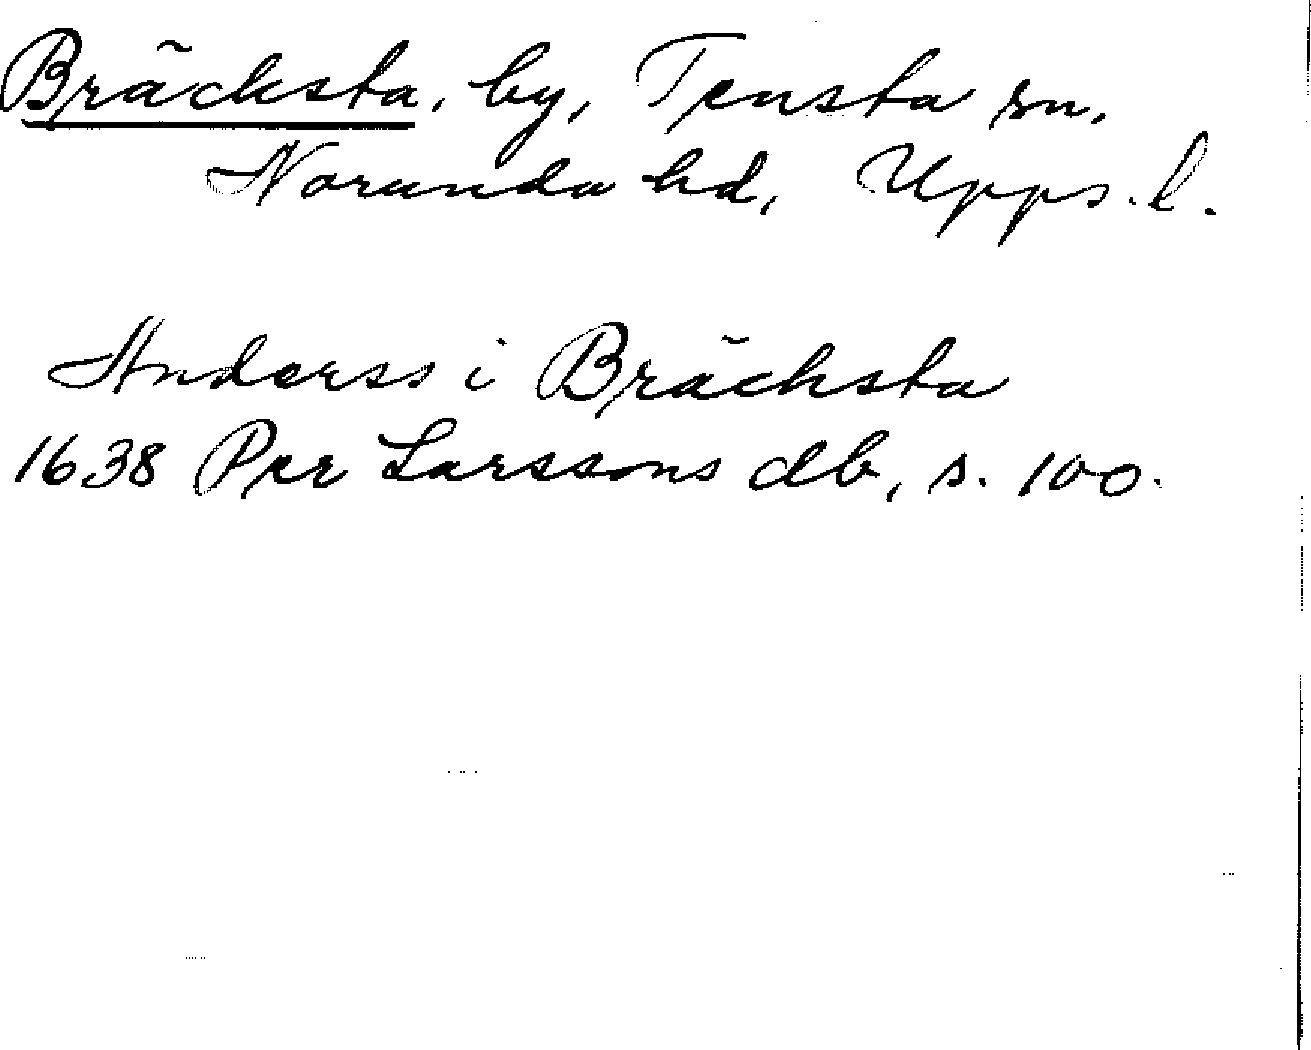 Bräcksta, by, Tensta sn,
Norunda hd, Upps. l.
Anderss i Brächsta
1638 Per Larssons db, s. 100.